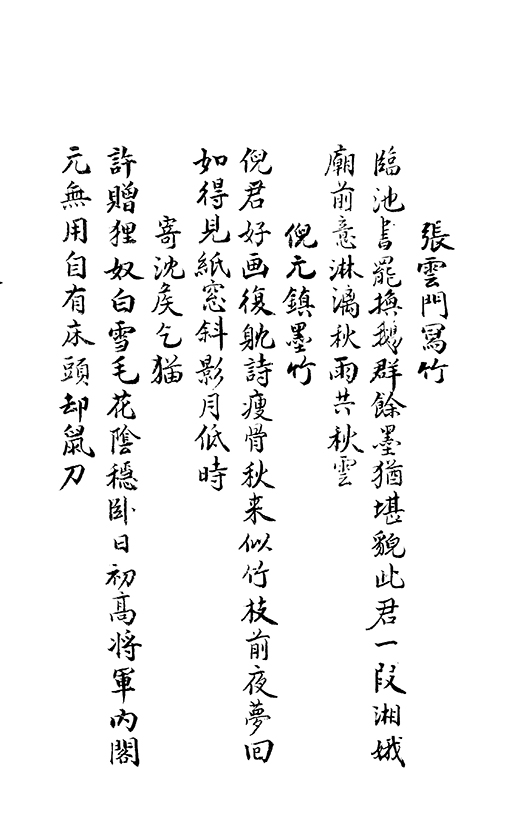 張雲門寫竹
臨池書罷換鵝群餘墨猶堪貌此君一段湘娥
廟前意淋漓秋雨共秋雲
倪元鎮墨竹
倪君好画復躭詩瘦骨秋来似竹枝前夜夢回
如得見紙窓斜影月低時
寄沈矦乞猫
許贈狸奴白雪毛花陰穩卧日初高将軍内閣
元無用自有床頭却鼠刀